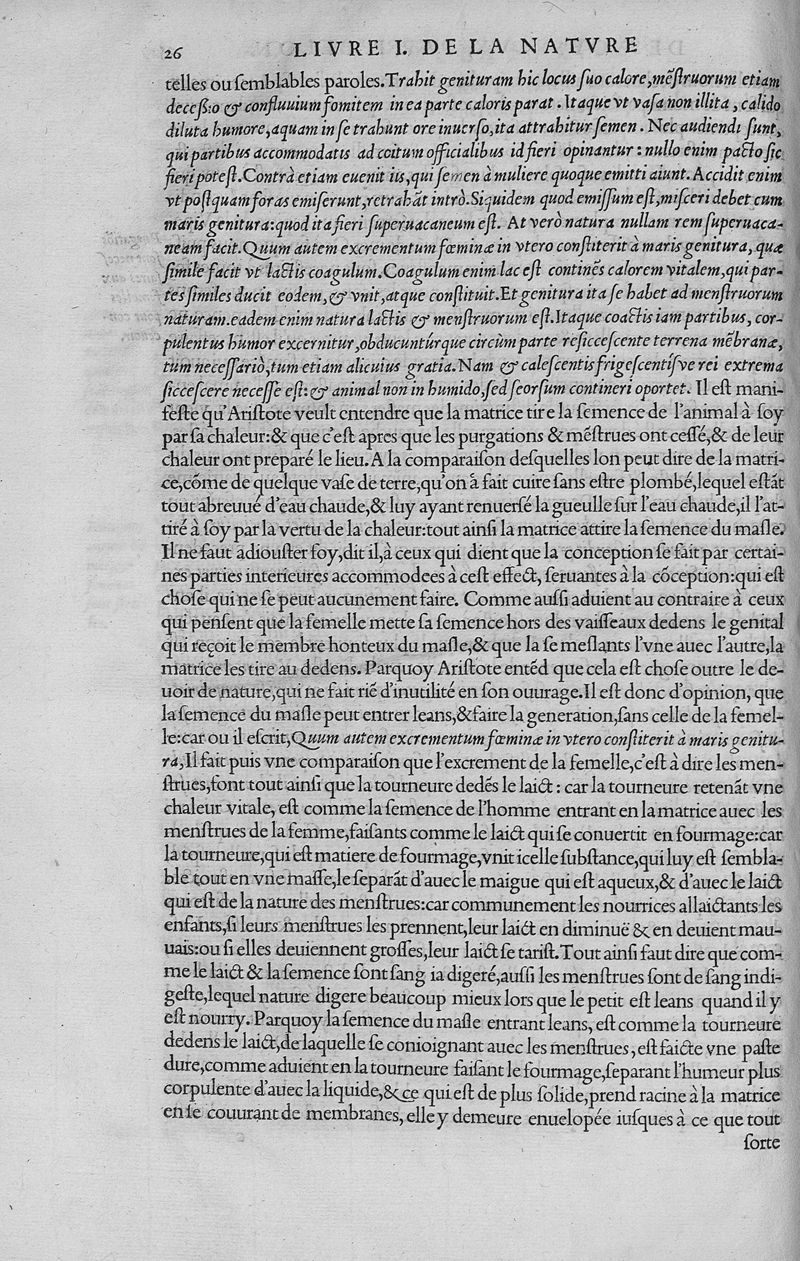 26 LIVRE I. DE LA NATVRE
telles ou ſemblables paroles. Trahit genituram hic locus ſuo calore, mẽſtruorum etiam
deceſſio & confluuium fomitem in ea parte caloris parat. Itaque vt vaſa non illita, calido
diluta humore, aquam in ſe trahunt ore inuerſo, ita attrahitur ſemen. Nec audiendi ſunt,
qui partibus accommodatis ad coitum officialibus id fieri opinantur: nullo enim pacto ſic
fieri poteſt. Contrà etiam euenit iis, qui ſemen à muliere quoque emitti aiunt. Accidit enim
vt poſtquam foras emiſerunt, retrahãt intrò. Siquidem quod emiſſum eſt, miſceri debet cum
maris genitura: quod ita fieri ſuperuacaneum eſt. At verò natura nullam rem ſuperuaca-
neam facit. Quum autem excrementum fœminæ in vtero conſtiterit à maris genitura, quæ
ſimile facit vt lactis coagulum. Coagulum enim lac eſt continẽs calorem vitalem, qui par-
tes ſimiles ducit eodem, & vnit, atque conſtituit. Et genitura ita ſe habet ad menſtruorum
naturam. eadem enim natura lactis & menſtruorum eſt. Itaque coactis iam partibus, cor-
pulentus humor excernitur, obducuntúrque circùm parte reſicceſcente terrena mẽbranæ,
tum neceſſariò, tum etiam alicuius gratia. Nam & caleſcentis frigeſcentiſve rei extrema
ſicceſcere neceſſe eſt: & animal non in humido, ſed ſeorſum contineri oportet. Il eſt mani-
feſte qu'Ariſtote veult entendre que la matrice tire la ſemence de l'animal à ſoy
par ſa chaleur: & que c'eſt apres que les purgations & mẽſtrues ont ceſſé, & de leur
chaleur ont preparé le lieu. A la comparaiſon deſquelles lon peut dire de la matri-
ce, cõme de quelque vaſe de terre, qu'on à fait cuire ſans eſtre plombé, lequel eſtãt
tout abreuué d'eau chaude, & luy ayant renuerſé la gueulle ſur l'eau chaude, il l'at-
tiré à ſoy par la vertu de la chaleur: tout ainſi la matrice attire la ſemence du maſle.
Il ne faut adiouſter foy, dit il, à ceux qui dient que la conception ſe fait par certai-
nes parties interieures accommodees à ceſt effect, ſeruantes à la cõception: qui eſt
choſe qui ne ſe peut aucunement faire. Comme auſſi aduient au contraire à ceux
qui penſent que la femelle mette ſa ſemence hors des vaiſſeaux dedens le genital
qui reçoit le membre honteux du maſle, & que la ſe meſlants l'vne auec l'autre, la
matrice les tire au dedens. Parquoy Ariſtote entẽd que cela eſt choſe outre le de-
uoir de nature, qui ne fait riẽ d'inutilité en ſon ouurage. Il eſt donc d'opinion, que
la ſemence du maſle peut entrer leans, & faire la generation, ſans celle de la femel-
le: car ou il eſcrit, Quum autem excrementum fœminæ in vtero conſtiterit à maris genitu-
ra, Il fait puis vne comparaiſon que l'excrement de la femelle, c'eſt à dire les men-
ſtrues, font tout ainſi que la tourneure dedẽs le laict: car la tourneure retenãt vne
chaleur vitale, eſt comme la ſemence de l'homme entrant en la matrice auec les
menſtrues de la femme, faiſants comme le laict qui ſe conuertit en fourmage: car
la tourneure, qui eſt matiere de fourmage, vnit icelle ſubſtance, qui luy eſt ſembla-
ble tout en vne maſſe, le ſeparãt d'auec le maigue qui eſt aqueux, & d'auec le laict
qui eſt de la nature des menſtrues: car communement les nourrices allaictants les
enfants, ſi leurs menſtrues les prennent, leur laict en diminuë & en deuient mau-
uais: ou ſi elles deuiennent groſſes, leur laict ſe tariſt. Tout ainſi faut dire que com-
me le laict & la ſemence ſont ſang ia digeré, auſſi les menſtrues ſont de ſang indi-
geſte, lequel nature digere beaucoup mieux lors que le petit eſt leans quand il y
eſt nourry. Parquoy la ſemence du maſle entrant leans, eſt comme la tourneure
dedens le laict, de laquelle ſe conioignant auec les menſtrues, eſt faicte vne paſte
dure, comme aduient en la tourneure faiſant le fourmage, ſeparant l'humeur plus
corpulente d'auec la liquide, & ce qui eſt de plus ſolide, prend racine à la matrice
en ſe couurant de membranes, elle y demeure enuelopée iuſques à ce que tout
ſorte